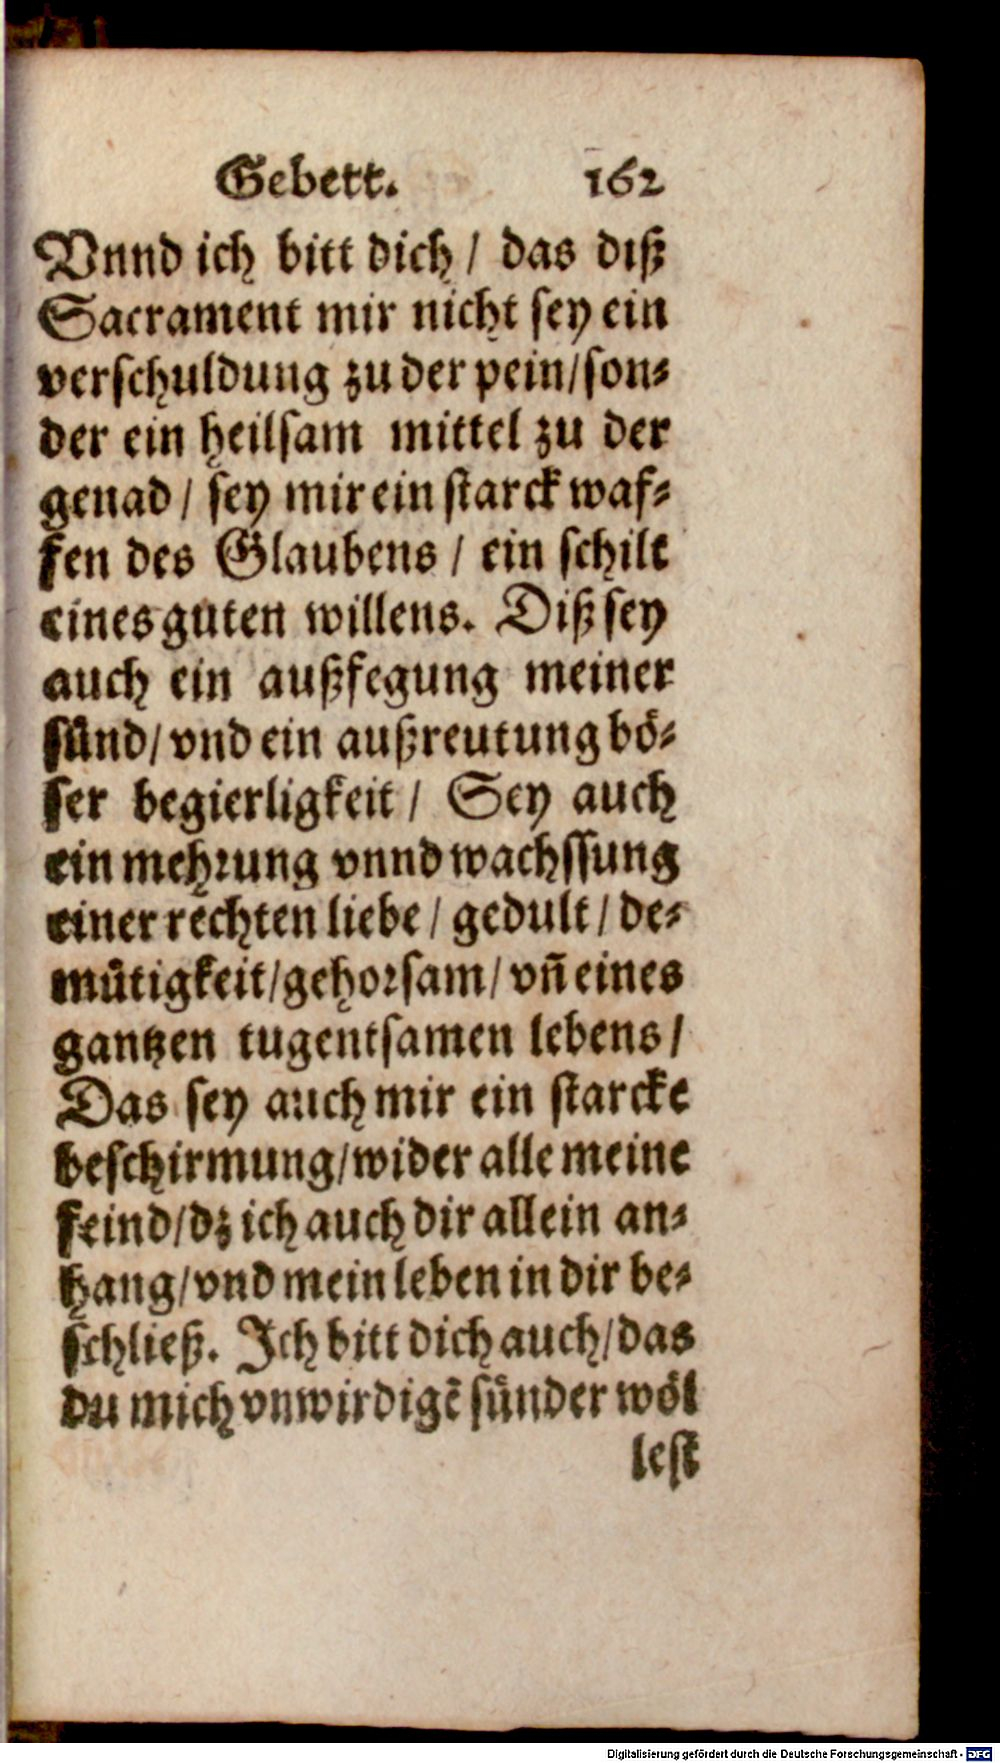 Gebett. 162
Vnnd ich bitt dich / das diß
Sacrament mir nicht sey ein
verschuldung zu der pein/son-
der ein heilsam mittel zu der
genad / sey mir ein starck waf-
fen des Glaubens / ein schilt
eines guten willens. Diß sey
auch ein außfegung meiner
sünd/ vnd ein außreutung bö-
ser begierligkeit / Sey auch
ein mehrung vnnd wachssung
einer rechten liebe / gedult / de-
mütigkeit/gehorsam/ vñ eines
gantzen tugentsamen lebens /
Das sey auch mir ein starcke
beschirmung/wider alle meine
feind/dz ich auch dir allein an-
hang/vnd mein leben in dir be-
schließ. Ich bitt dich auch/das
du mich vnwirdigẽ sünder wöl
lest
Digitalisierung gefördert durch die Deutsche Forschungsgemeinschaft - DFG